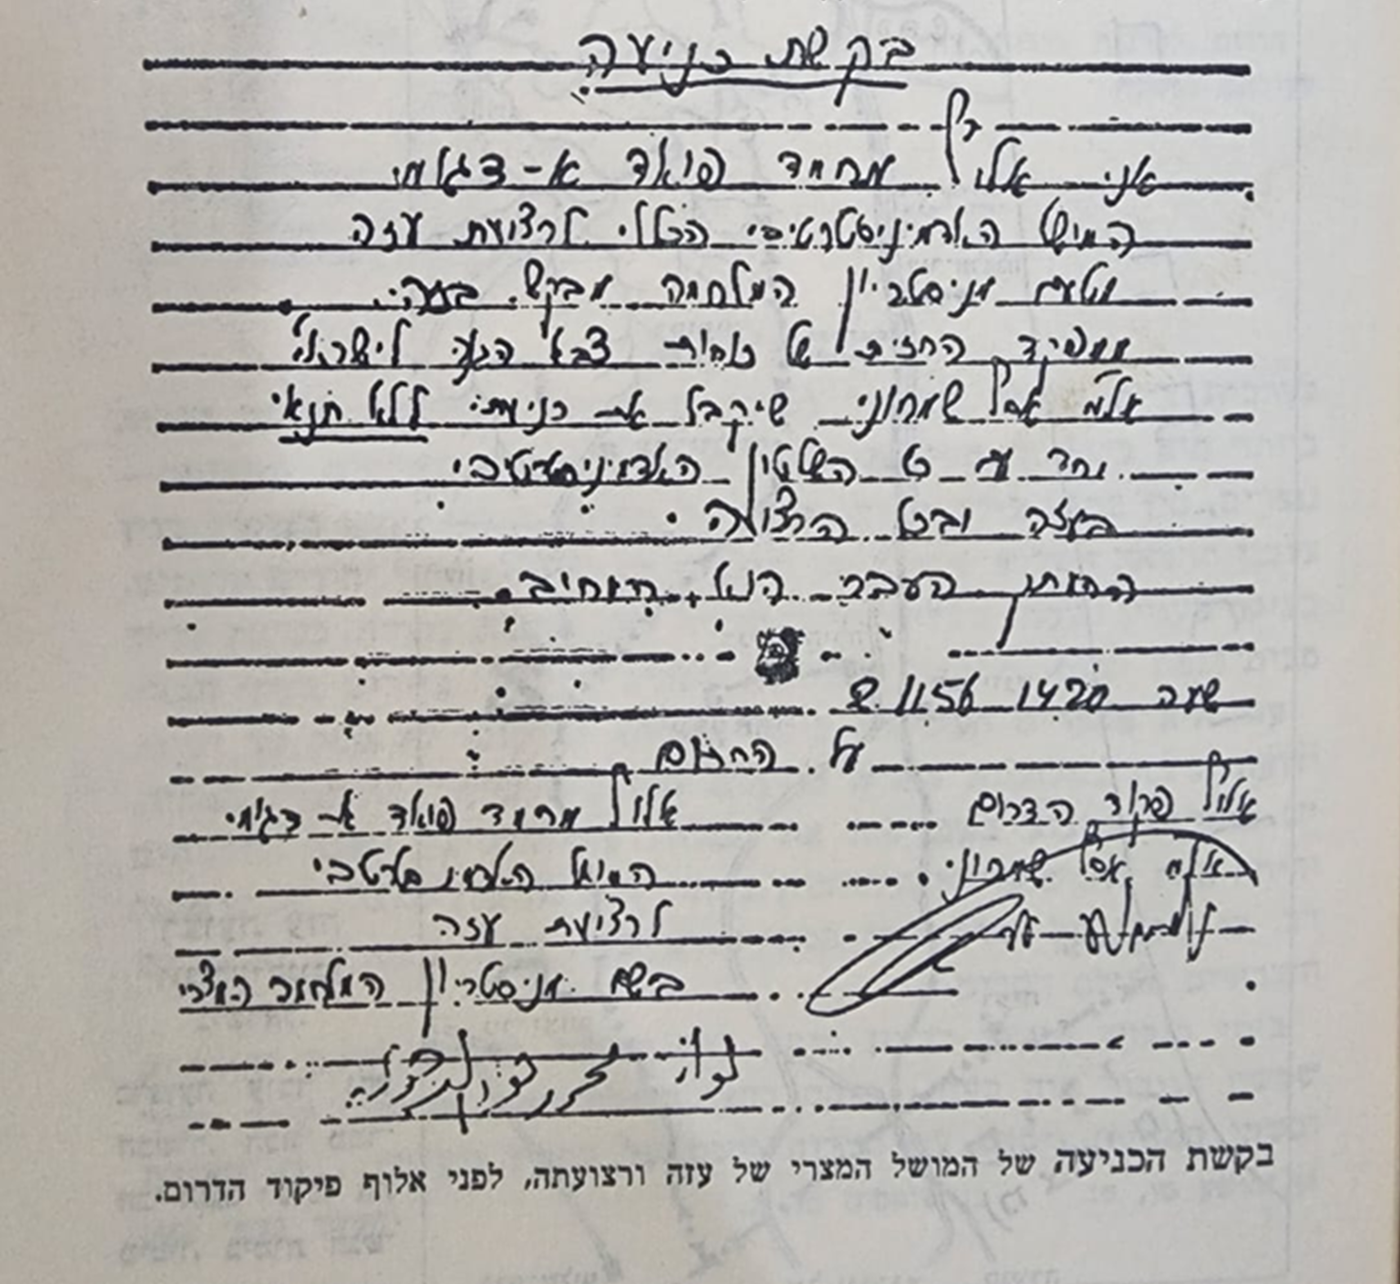 בקשת כניעה
אני אלוף מחמד פואד א-דגאוי
המושל האדמיניסטרטיבי הכללי לרצועת עזה
מטעם מניסטריון המלחמה מבקש בזה
ממפקד החזית של כוחות צבא הגנה לישראל
אל"מ אסף שמחוני שיקבל את כניעתי ללא תנאי
השלטון האדמיניסטרטיבי
בעזה ובכל הרצועה
העברי הנ"ל
שעה 1420 2.11.56
על החתום
אלוף פקוד הדרום
אלוף מחמד פואד א-דגאוי
אל"מ אסף שמחוני
המושל האדמיניסטרטיבי
לרצועת עזה
בשם מניסטריון המלחמה המצרי
בקשת הכניעה של המושל המצרי של עזה ורצועתה, לפני אלוף פיקוד הדרום.